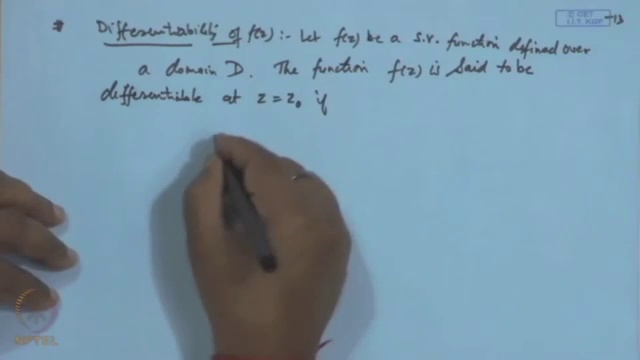 * Differentiability of f(z) :- Let f(z) be a s.v. function defined over
a domain D. The function f(z) is said to be
differentiable at z = z₀ if
© CET
I.I.T. KGP
-13
NPTEL